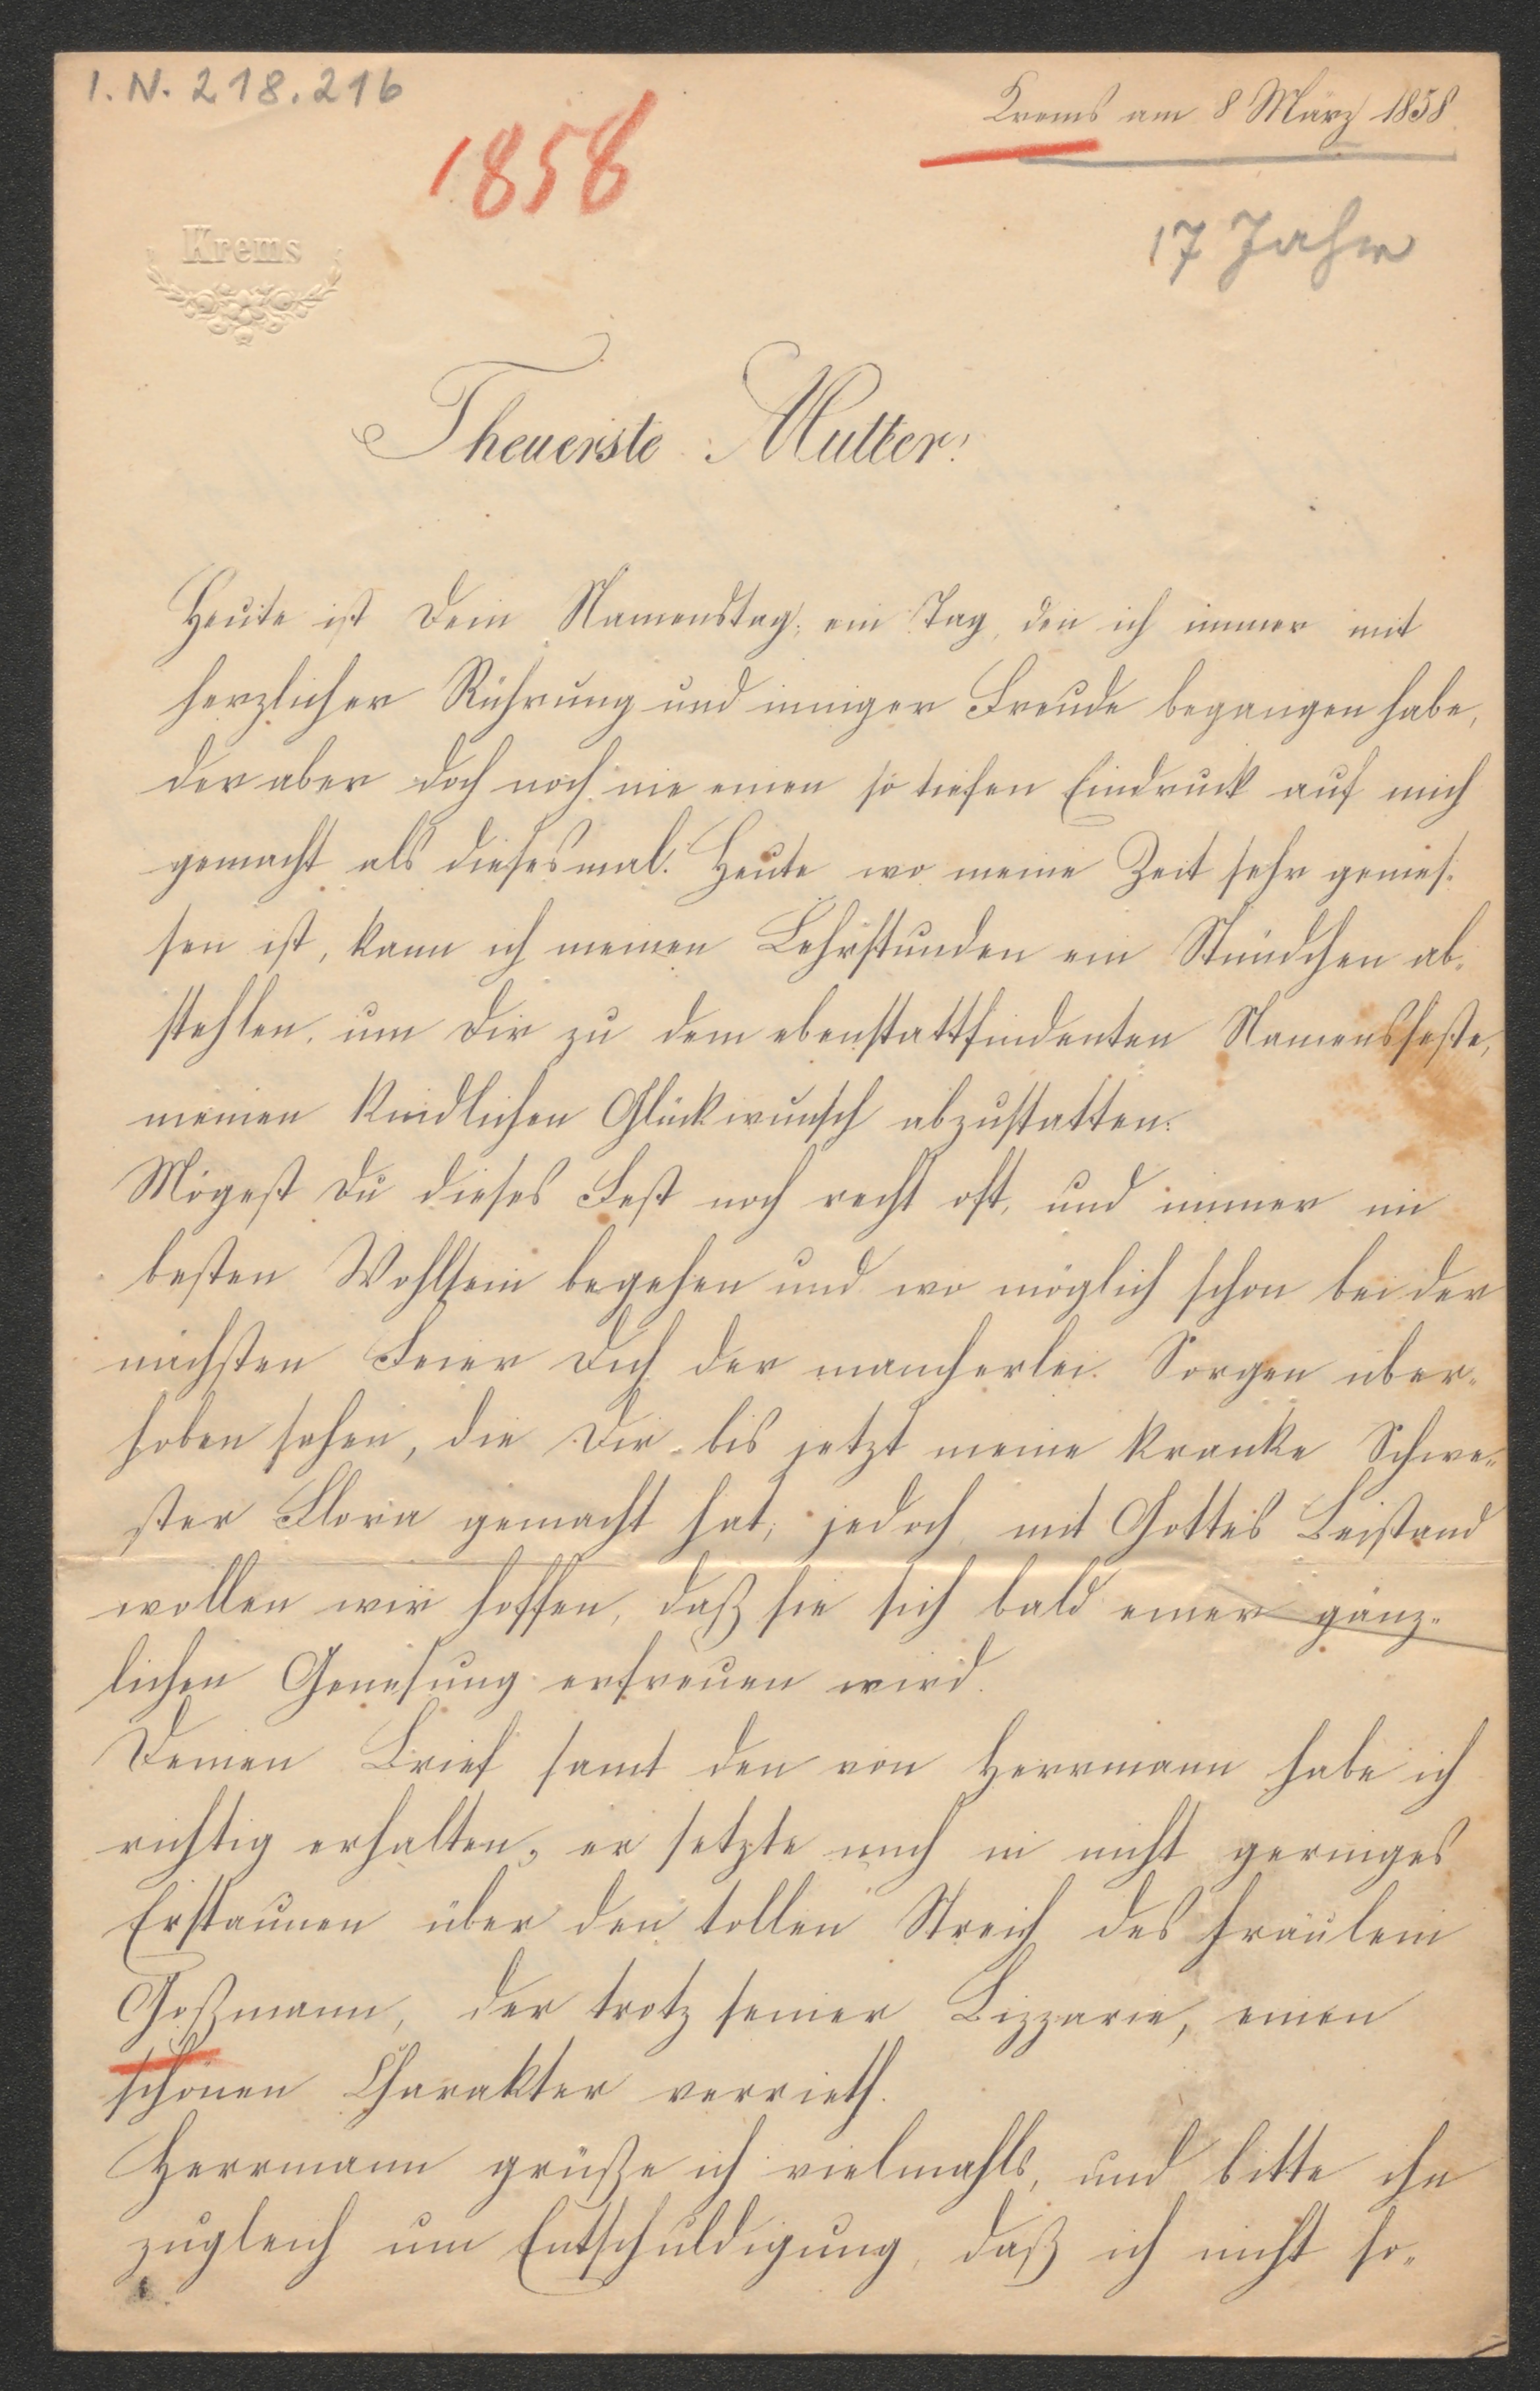 I.N. 218.216
Krems am 8 März 1858.
1858
17 Jahre
Krems
Theuerste Mutter!
Heute ist Dein Namenstag; ein Tag, den ich immer mit
herzlicher Rührung und inniger Freude begangen habe,
der aber doch noch nie einen so tiefen Eindruck auf mich
gemacht als diesesmal. Heute wo meine Zeit sehr gemes-
sen ist, kann ich meinen Lehrstunden ein Stündchen ab-
stehlen, um Dir zu dem ebenstattfindenten Namensfeste,
meinen kindlichen Glückwunsch abzustatten.
Mögest Du dieses Fest noch recht oft, und immer im
besten Wohlsein begehen und wo möglich schon bei der
nächsten Feier Dich der mancherlei Sorgen über-
hoben sehen, die Dir bis jetzt meine kranke Schwe-
ster Flora gemacht hat; jedoch mit Gottes Beistand
wollen wir hoffen, daß sie sich bald einer gänz-
lichen Genesung erfreuen wird.
Deinen Brief samt den von Herrmann habe ich
richtig erhalten, er setzte mich in nicht geringes
Erstaunen über den tollen Streich des Fräulein
Goßmann, der trotz seiner Bizzarie, einen
schönen Charakter verrieth.
Herrmann grüße ich vielmahls, und bitte ihn
zugleich um Entschuldigung, daß ich nicht so-